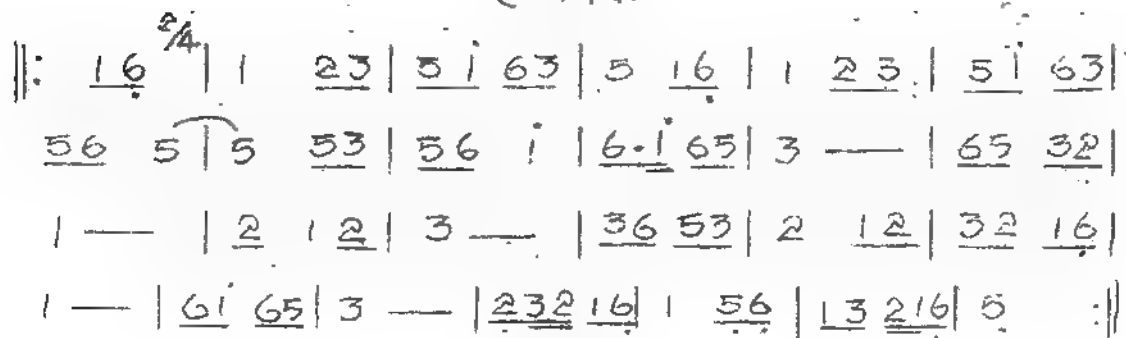 ‖: 16̣ 2/4 | 1 23 | 51̇ 63 | 5 16̣ | 1 23 | 51̇ 63 |
56 5 | 5 53 | 56 1̇ | 6·1̇ 65 | 3 — | 65 32 |
1 — | 2 1 2 | 3 — | 36 53 | 2 12 | 32 16̣ |
1 — | 61̇ 65 | 3 — | 232 16̣ | 1 5̣6̣ | 13 216̣ | 5̣ :‖